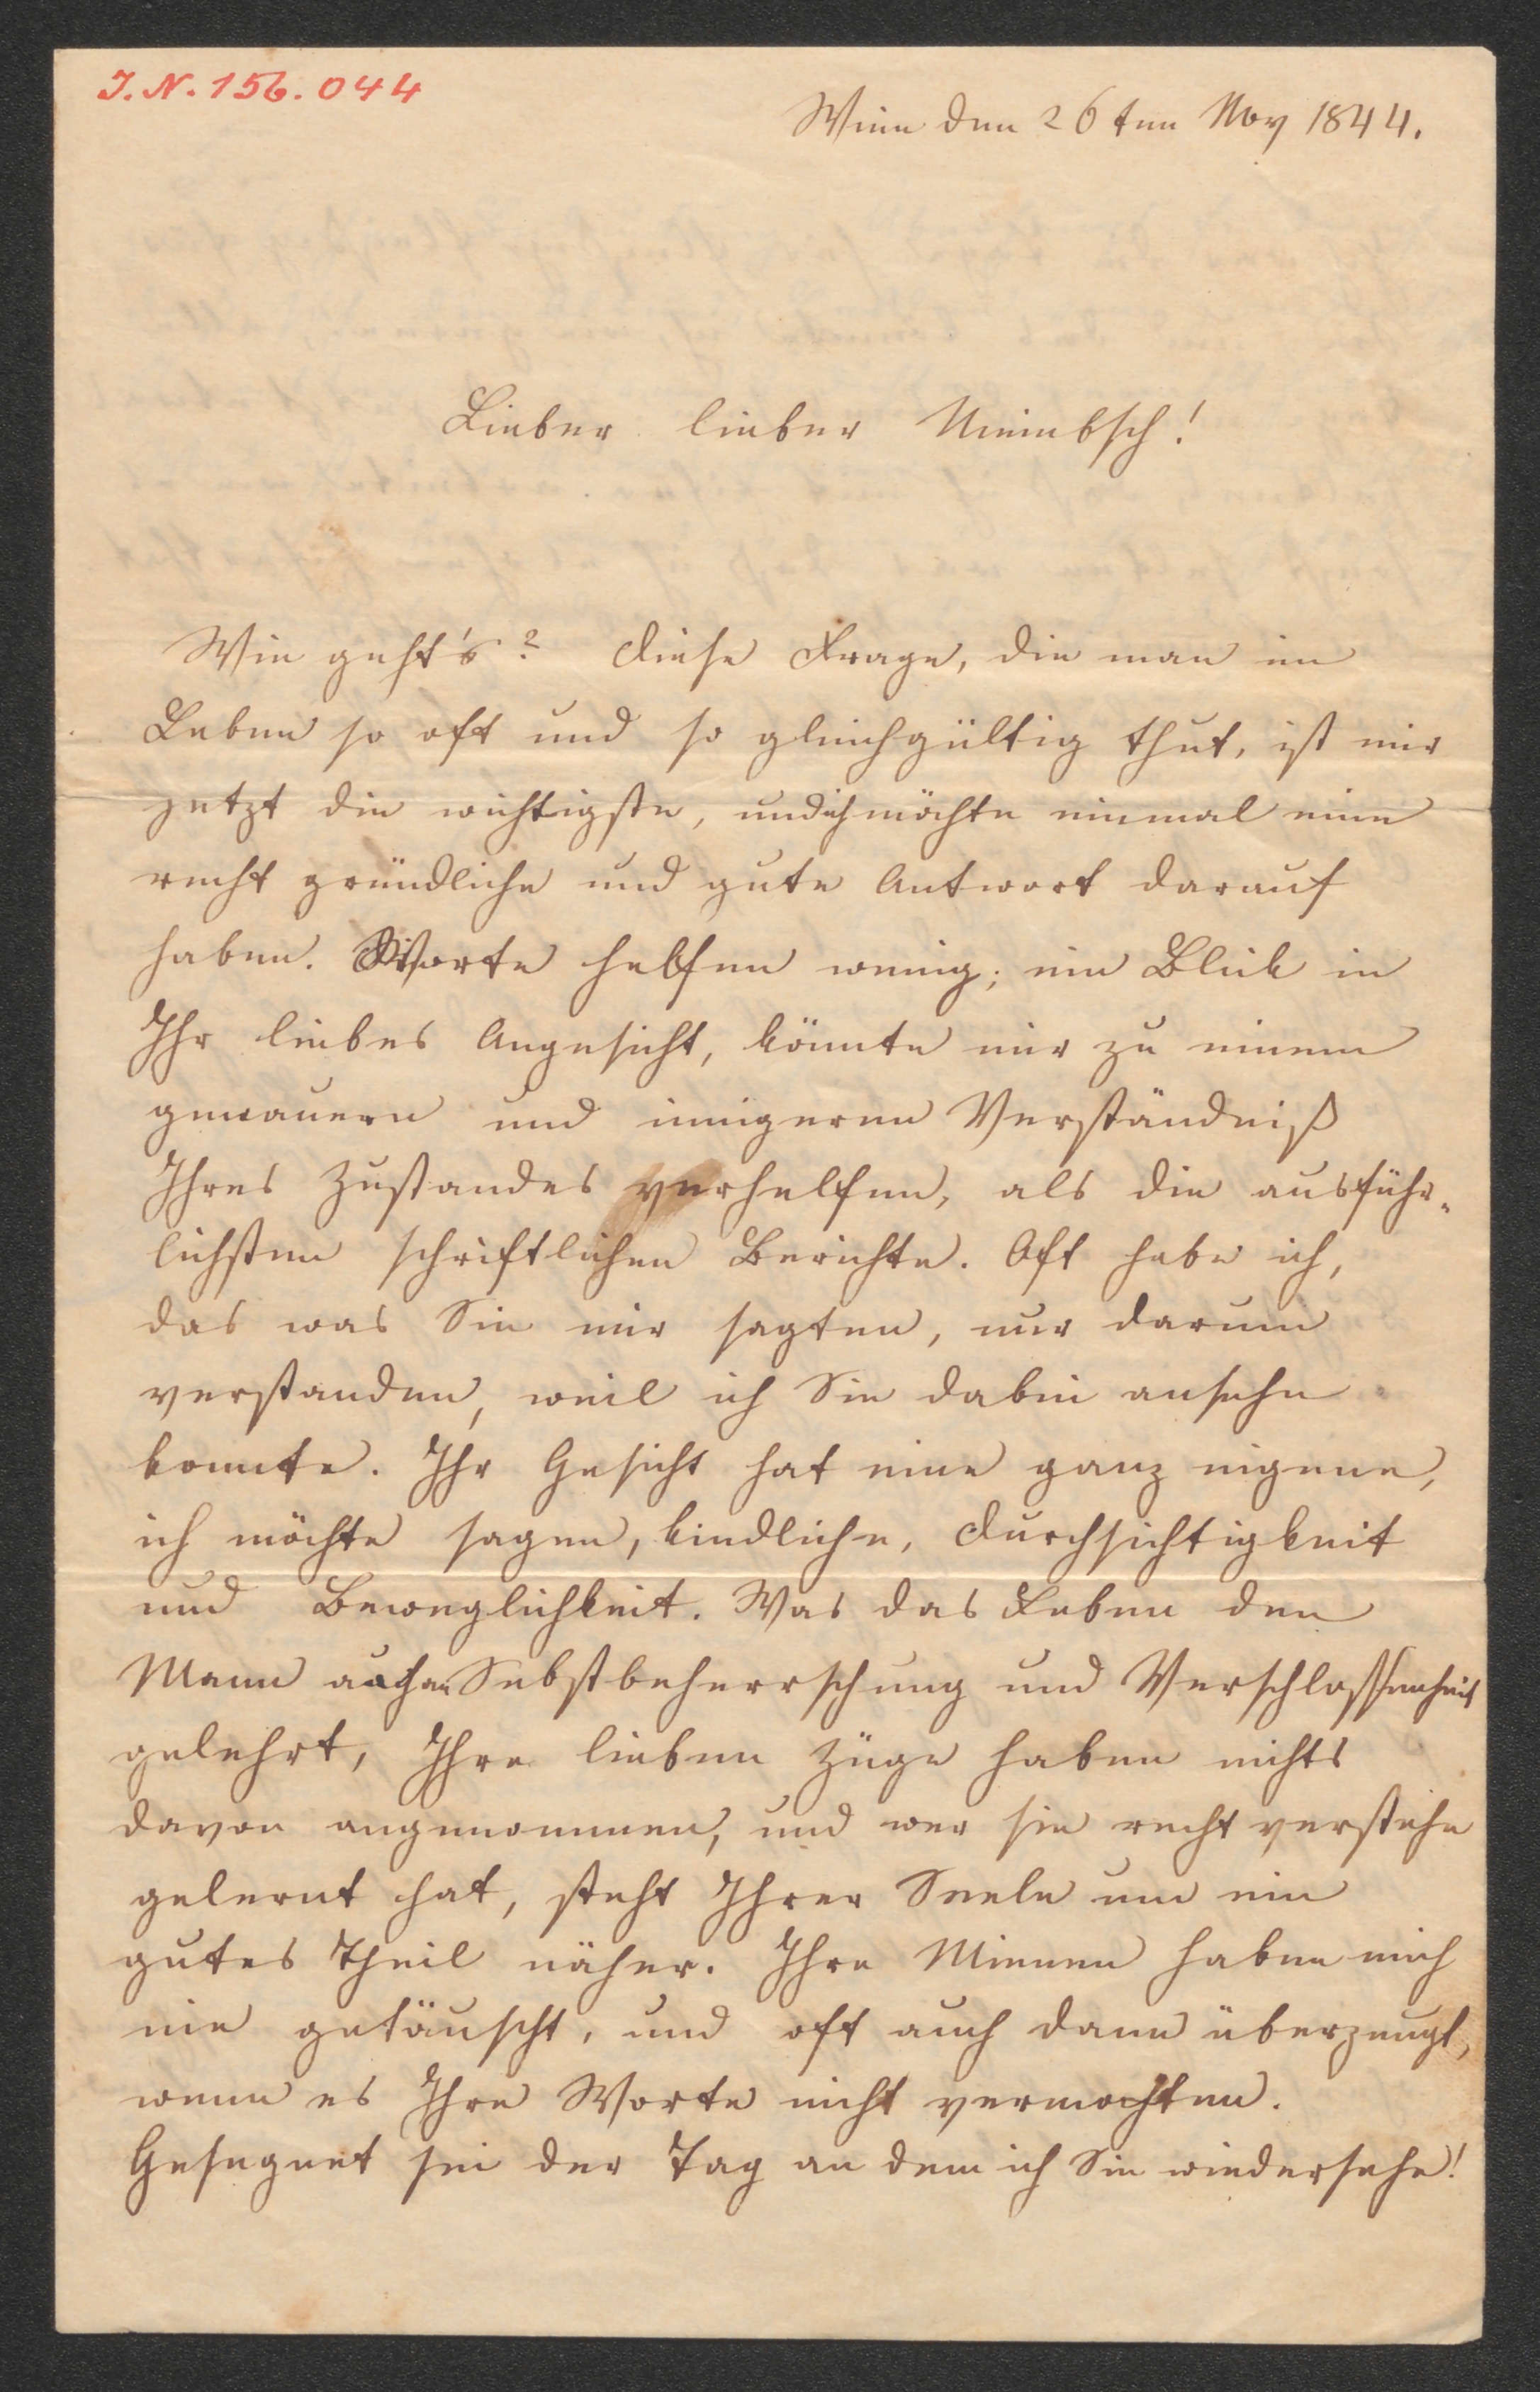 I. N. 156.044
Wien den 26ten Nov 1844.
Lieber lieber Niembsch!
Wie geht's? Diese Frage, die man im
Leben so oft und so gleichgültig thut, ist mir
jetzt die wichtigste, und ich möchte einmal eine
recht gründliche und gute Antwort darauf
haben. Worte helfen wenig; ein Blick in
Ihr liebes Angesicht, könnte mir zu einem
genauern und innigeren Verständniß
Ihres Zustandes verhelfen, als die ausführ-
lichsten schriftlichen Berichte. Oft habe ich,
das was Sie mir sagten, nur darum
verstanden, weil ich Sie dabei ansehn
konnte. Ihr Gesicht hat eine ganz eigene,
ich möchte sagen, kindliche, Durchsichtigkeit
und Beweglichkeit. Was das Leben den
Mann auch an Sebstbeherrschung und Verschlossenheit
gelehrt, Ihre lieben Züge haben nichts
davon angenommen, und wer sie recht verstehn
gelernt hat, steht Ihrer Seele um ein
gutes Theil näher. Ihre Mienen haben mich
nie getäuscht, und oft auch dann überzeugt,
wenn es Ihre Worte nicht vermochten.
Gesegnet sei der Tag an dem ich Sie wiedersehe!